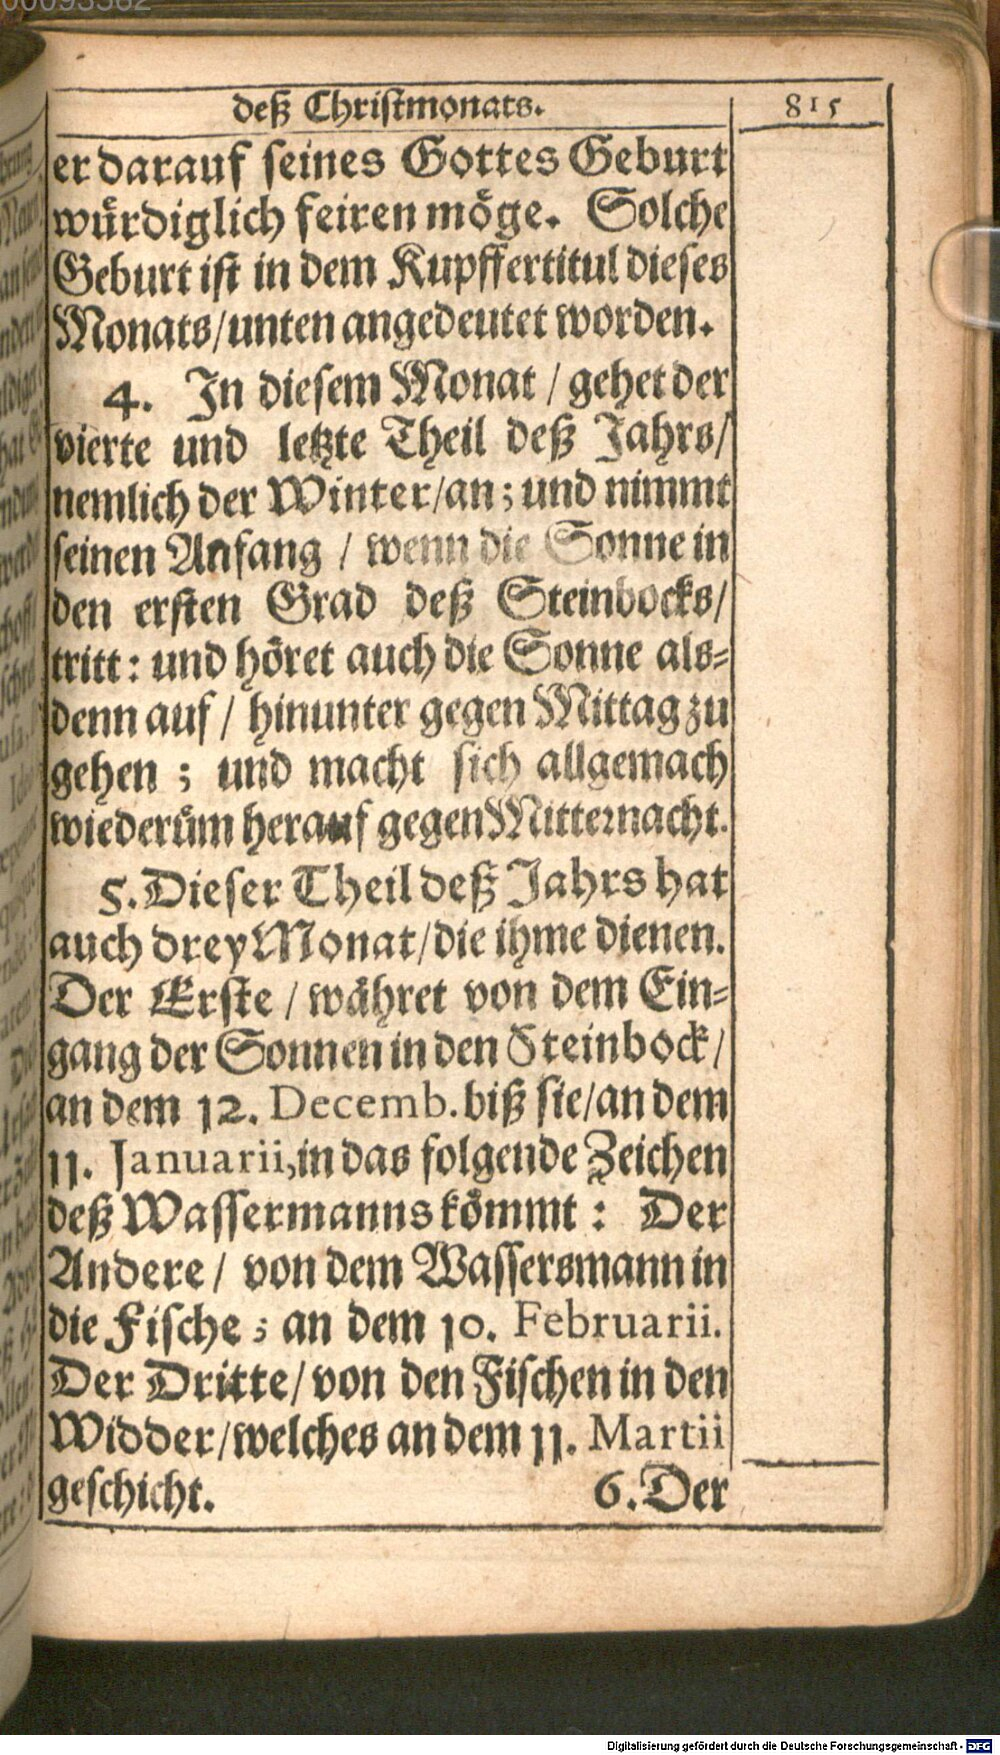 deß Christmonats. 815
er darauf seines Gottes Geburt
würdiglich feiren möge. Solche
Geburt ist in dem Kupffertitul dieses
Monats/unten angedeutet worden.
4. In diesem Monat / gehet der
vierte und letzte Theil deß Jahrs/
nemlich der Winter/an; und nimmt
seinen Anfang / wenn die Sonne in
den ersten Grad deß Steinbocks/
tritt: und höret auch die Sonne als-
denn auf / hinunter gegen Mittag zu
gehen; und macht sich allgemach
wiederüm herauf gegen Mitternacht.
5. Dieser Theil deß Jahrs hat
auch drey Monat/die ihme dienen.
Der Erste / währet von dem Ein-
gang der Sonnen in den Steinbock/
an dem 12. Decemb. biß sie/an dem
11. Januarii, in das folgende Zeichen
deß Wassermanns kömmt: Der
Andere / von dem Wassersmann in
die Fische; an dem 10. Februarii.
Der Dritte/von den Fischen in den
Widder/welches an dem 11. Martii
geschicht. 6. Der
Digitalisierung gefördert durch die Deutsche Forschungsgemeinschaft - DFG